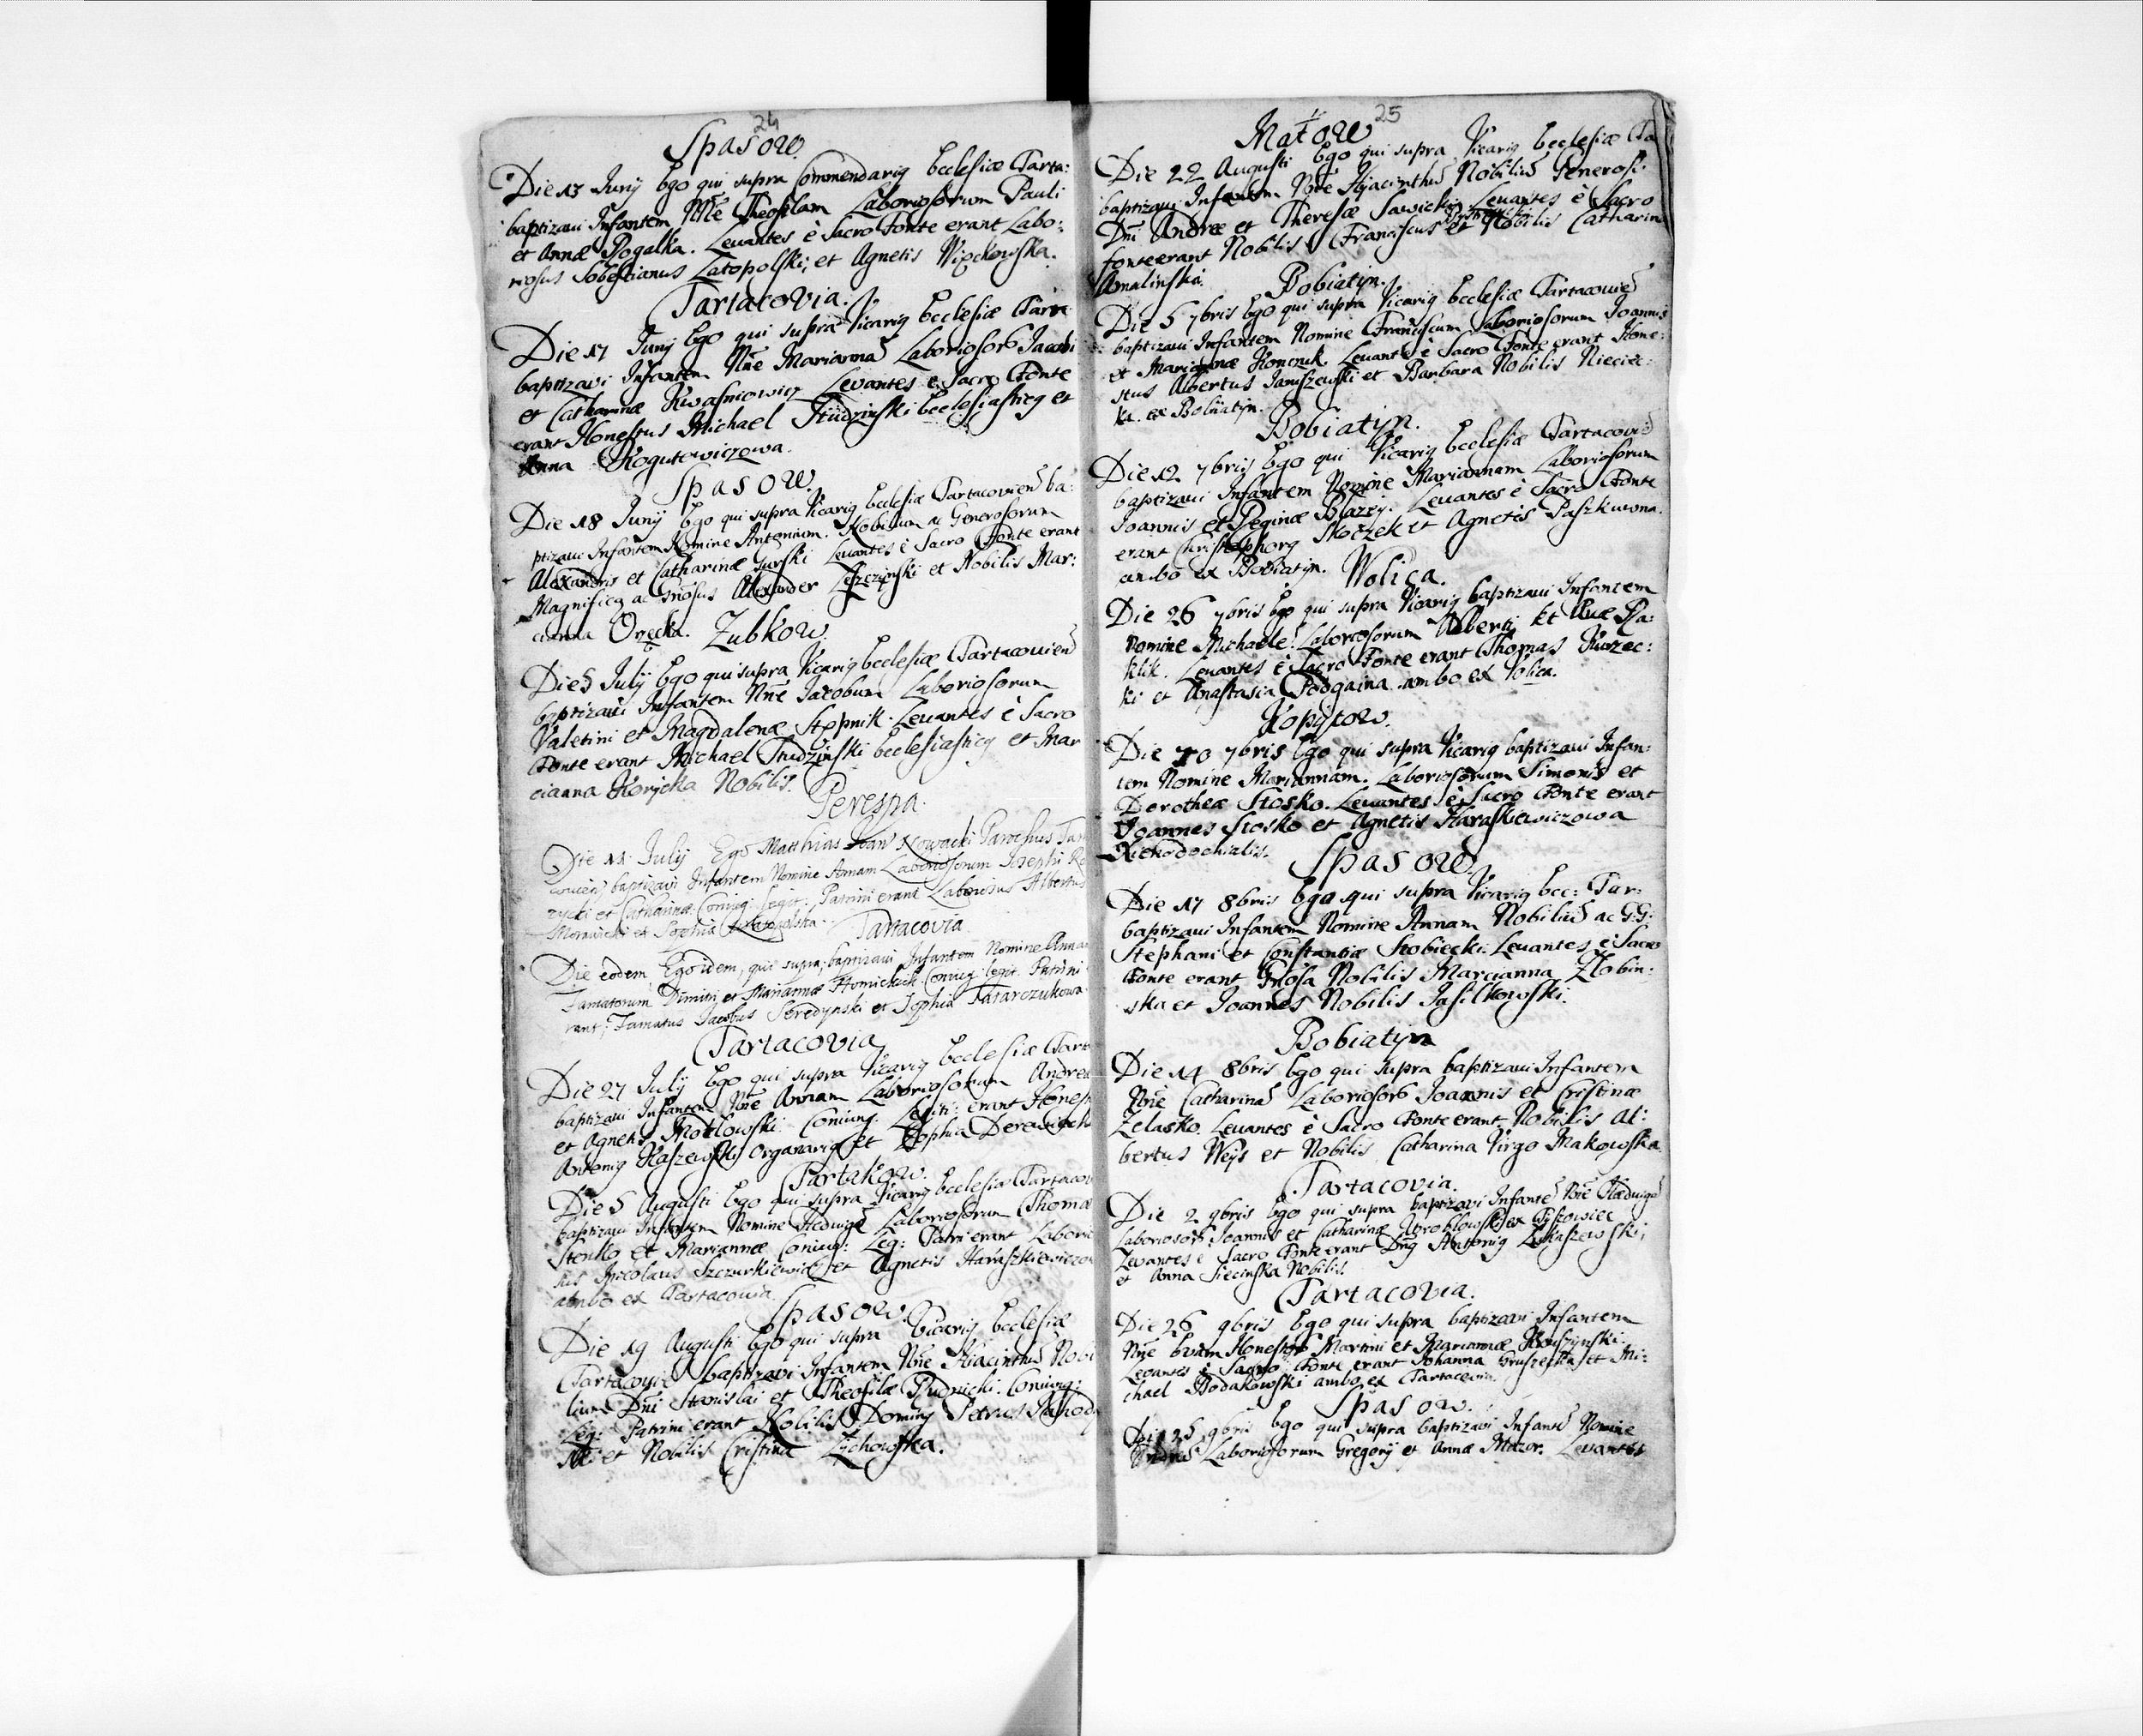 24
Spasow.
Die 13 Junÿ Ego qui supra Commendarig Ecclesiæ Tarta:
baptizavi Infantem Nñe Theofilam Laboriosorum Pauli
et Annæ Rogalka. Levantes è Sacro Fonte erant Labo:
riosus Sobestianus Zatopolski, et Agnetis Więckowska.
Tartacovia.
Die 17 Junÿ Ego qui supra Vicarig Ecclesiæ Tarta
baptizavi Infantem Nñe Marianna Laboriosorõ Jacobi
et Catharinæ Kwasniowicz Levantes è Sacro Fonte
erant Honestus Michael Studzinski Ecclesiasticg et
Anna Kogutowiczowa.
Spasow.
Die 18 Junÿ Ego qui supra Vicarig Ecclesiæ Tartacovien ba:
ptizavi Infantem Nomine Antonium. Nobilium ac Generosorum
Alexandris et Catharinæ Gurski Levantes è Sacro Fonte erant
Magnificg ac Gñosus Alexander et Nobilis Mar:
cianna Orzęcka.
Zubkow.
Die 5 Julÿ Ego qui supra Vicarig Ecclesiæ Tartacovien
baptizavi Infantem Nñe Jacobum Laboriosorum
Valetini et Magdalenæ Stępnik. Levantes è Sacro
Fonte erant Michael Studzinski Ecclesiasticg et Mar
cianna Korÿcka Nobilis.
Perespa.
Die 11 Julÿ Ego Matthias Joan Nowacki Parochus Tar
baptizavi Infantem Nomine Annam Laboriosorum Josephi
et Catharinæ Coniug: Legit: Patrini erant Laboriosus Albertus
Morawicki et Sophia
Tartacovia
Die eodem, Ego idem, qui supra, baptizavi Infantem Nomine Anna
Famatorum Dimitri et Mariannæ Homickich Coniug: legit. Patrini
rant, Famatus Jacobus Seredynski et Sophia Tatarczukowa
Tartacovia
Die 27 Julÿ Ego qui supra Vicarig Ecclesiæ Tart
baptizavi Infantem Nñe Annam Laboriosorum Andrea
et Agnetis Motlowski. Coniung. Legiti: erant Honest
Antonig Kaszewski Organarig et Sophia
Tartakow.
Die 5 Augusti Ego qui supra Vicarig Ecclesiæ Tartacov
baptizavi Infantem Nomine Hedwigẽ Laboriosorum Thoma
Stenko et Mariannæ Coniug: Leg: Patri erant Laborio
sus Nicolaus Szczurkiewicz et Agnetis Haraszkiewiczow
ambo ex Tartacovia.
Spasow.
Die 19 Augusti Ego qui supra Vicarig Ecclesiæ
Tartacovie baptizavi Infantem Nñe Hiacinthũ Nobi
lium Dñi Stanislai et Theofilæ Rudnicki. Coniung:
Leg: Patrini erant Nobilis Doming Petrus
ski et Nobilis Cristina Zÿchowska.
25
Matow
Die 22 Augusti Ego qui supra Vicarig Ecclesiæ Ta
baptizavi Infantem Nñe Hyacinthũ Nobiliũ Generosi.
Dñi Andreæ et Theresiæ Sawickig Levantes è Sacro
fonte erant Nobilis Franciscus et Nobilis Catharina
Amalinska.
Bobiatÿn.
Die 5 7bris Ego qui supra Vicarig Ecclesiæ Tartacovie
baptizavi Infantem Nomine Franciscum Laboriosorum Joannis
et Mariannæ Homczuk. Levantes è Sacro Fonte erant Hone:
stus Albertus Janiszewski et Barbara Nobilis Nieciec:
ka. ex Bobiatÿn.
Bobiatÿn.
Die 12 7bris Ego qui Vicarig Ecclesiæ Tartacovie
baptizavi Infantem Nomine Mariannam Laboriosorum
Joannis et Reginæ Blazey. Levantes è Sacro Fonte
erant Christophorg Skoczek et Agnetis Paszkuwna.
ambo ex Bobiatÿn.
Wolica.
Die 26 7bris Ego qui supra Vicarig baptizavi Infantem
Nomine Michaele. Laboriosorum Alberti et Evæ Ra:
klik. Levantes è Sacro Fonte erant Thomas Kurzec:
ki et Anastasia Podgaina. ambo ex Volica.
Kopÿtow.
Die 30 7bris Ego qui supra Vicarig baptizavi Infan:
tem Nomine Mariannam. Laboriosorum Simonis et
Dorotheæ Stosko. Levantes è Sacro Fonte erant
Joannes Stosko et Agnetis Haraskiewiczowa
Xienodochialis.
Spasow.
Die 17 8bris Ego qui supra Vicarig Ecc: Tar:
baptizavi Infantem Nomine Annam Nobiliũ ac G:G:
Stephani et Constantiæ Skobiecki. Levantes è Sacro
Fonte erant Gñosa Nobilis Marcianna Złobin:
ska et Joannes Nobilis Jasilkowski.
Bobiatÿn
Die 14 8bris Ego qui supra baptizavi Infantem
Nñe Catharinã Laboriosorõ Joannis et Cristinæ
Zelasko. Levantes è Sacro Fonte erant Nobilis Al:
bertus Weÿs et Nobilis Catharina Virgo Makowska.
Tartacovia.
Die 2 9bris Ego qui supra baptizavi Infantẽ Nñe Hedwigẽ
Laboriosorõ Joannis et Catharinæ Wroblowski ex
Levantes è Sacro Fonte erant Dñg Antonig Lukaszewski,
et Anna Siecinska Nobilis.
Tartacovia.
Die 26 9bris Ego qui supra baptizavi Infantem
Nñe Evam Honestorõ Martini et Mariannæ Kruszynski.
Levantes è Sacro Fonte erant Johanna Gruszecka et Mi:
chael Hodakowski ambo ex Tartacovia.
Spasow.
Die 25 9bris Ego qui supra baptizavi Infantẽ Nomine
Andreã Laboriosorum Gregorÿ et Annæ Mazur. Levantes